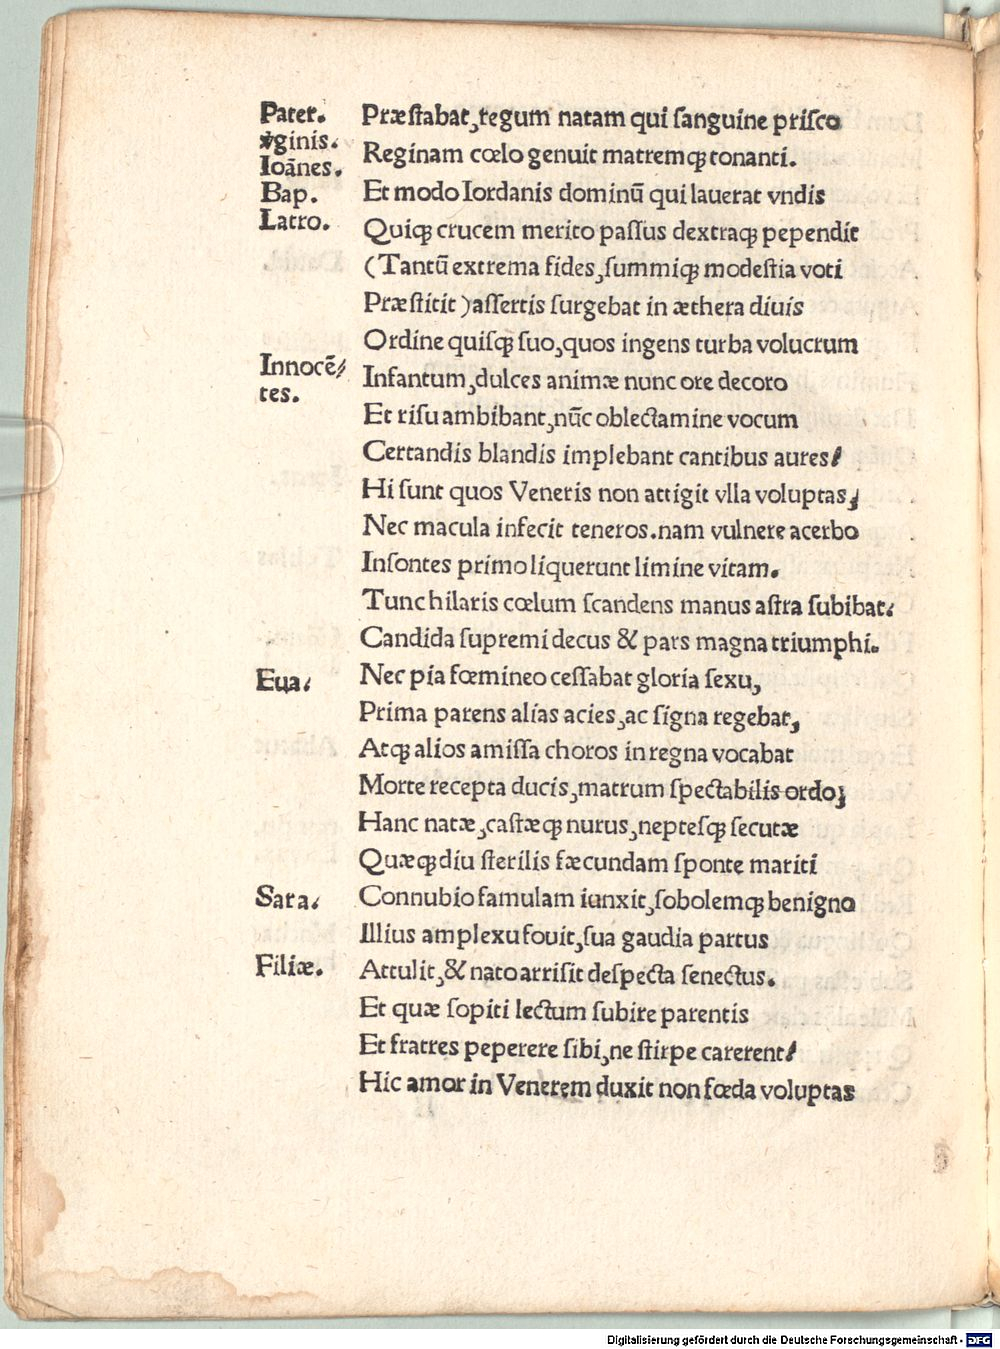 Pater. Præstabat, regum natam qui sanguine prisco
v̾ginis. Reginam cœlo genuit matremq̃ tonanti.
Ioānes. Bap. Et modo Iordanis dominū qui lauerat vndis
Latro. Quiq̃ crucem merito passus dextraq̃ pependit
(Tantū extrema fides, summiq̃ modestia voti
Præstitit) assertis surgebat in æthera diuis
Ordine quisq̃ suo, quos ingens turba volucrum
Innocē/ tes. Infantum, dulces animæ nunc ore decoro
Et risu ambibant, nūc oblectamine vocum
Certandis blandis implebant cantibus aures/
Hi sunt quos Veneris non attigit vlla voluptas,
Nec macula infecit teneros. nam vulnere acerbo
Insontes primo liquerunt limine vitam.
Tunc hilaris cœlum scandens manus astra subibat.
Candida supremi decus & pars magna triumphi.
Eua. Nec pia fœmineo cessabat gloria sexu,
Prima parens alias acies, ac signa regebat,
Atq̃ alios amissa choros in regna vocabat
Morte recepta ducis, matrum spectabilis ordo,
Hanc natæ, castæq̃ nurus, neptesq̃ secutæ
Quæq̃ diu sterilis fæcundam sponte mariti
Sara. Connubio famulam iunxit, sobolemq̃ benigno
Illius amplexu fouit, sua gaudia partus
Filiæ. Attulit, & nato arrisit despecta senectus.
Et quæ sopiti lectum subire parentis
Et fratres peperere sibi, ne stirpe carerent/
Hic amor in Venerem duxit non fœda voluptas
Digitalisierung gefördert durch die Deutsche Forschungsgemeinschaft - DFG